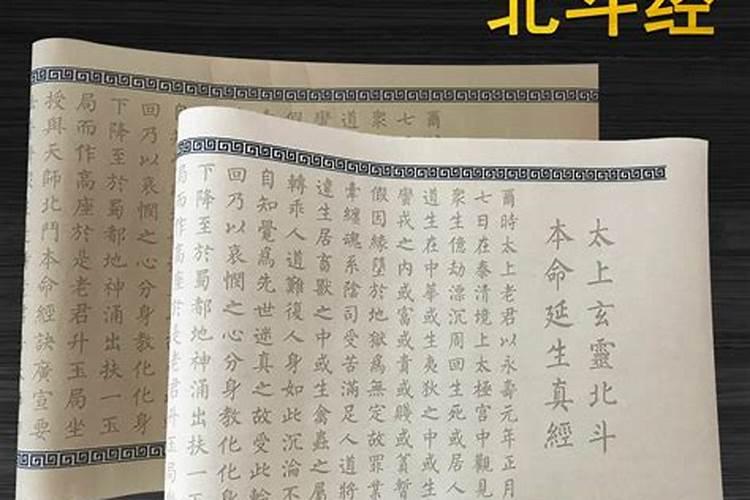 北斗经
太上玄靈北斗
本命延生真經
爾時太上老君以永壽元年正月
七日在泰清境上太極宮中觀見
眾生億劫漂沉周回生死或居人
道生在中華或生夷狄之中或生
蠻戎之內或富或貴或賤或暫
假因緣墮於地獄為無定故罪業
牽纏魂系陰司受苦滿足人道將
違生居畜獸之中或生禽蟲之屬
轉乖人道難復人身如此沉淪不
自知覺為先世迷真之故受此輪
回乃以哀憫之心分身教化化身
下降至於蜀都地神涌出扶一玉
局而作高座於是老君升玉局
爾
七
眾
道
蠻
假
自
回乃以哀憫之心分身教化化身
下降至於蜀都地神涌出扶一玉
局而作高座於是老君升玉局坐
授與天師北鬥本命經訣廣宣要